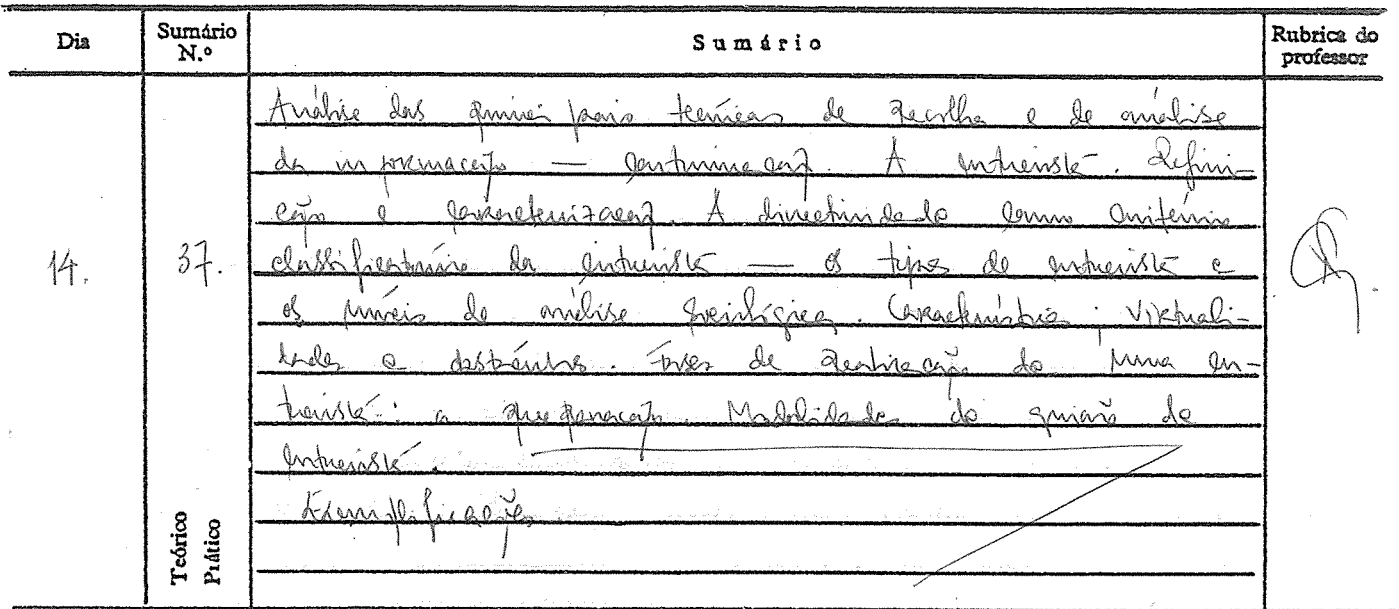 Dia
Sumário N.º
Sumário
Rubrica do professor
14.
37.
Teórico
Prático
Análise das principais técnicas de recolha e de análise
da informação — continuação. A entrevista. Defini-
ção e caracterização. A directividade como critério
classificatório da entrevista — os tipos de entrevista e
os níveis de análise sociológica. Características: virtuali-
dades e
. Fases de realização de uma en-
trevista: a preparação. Modalidades de guião de
entrevista.
Exemplificações.